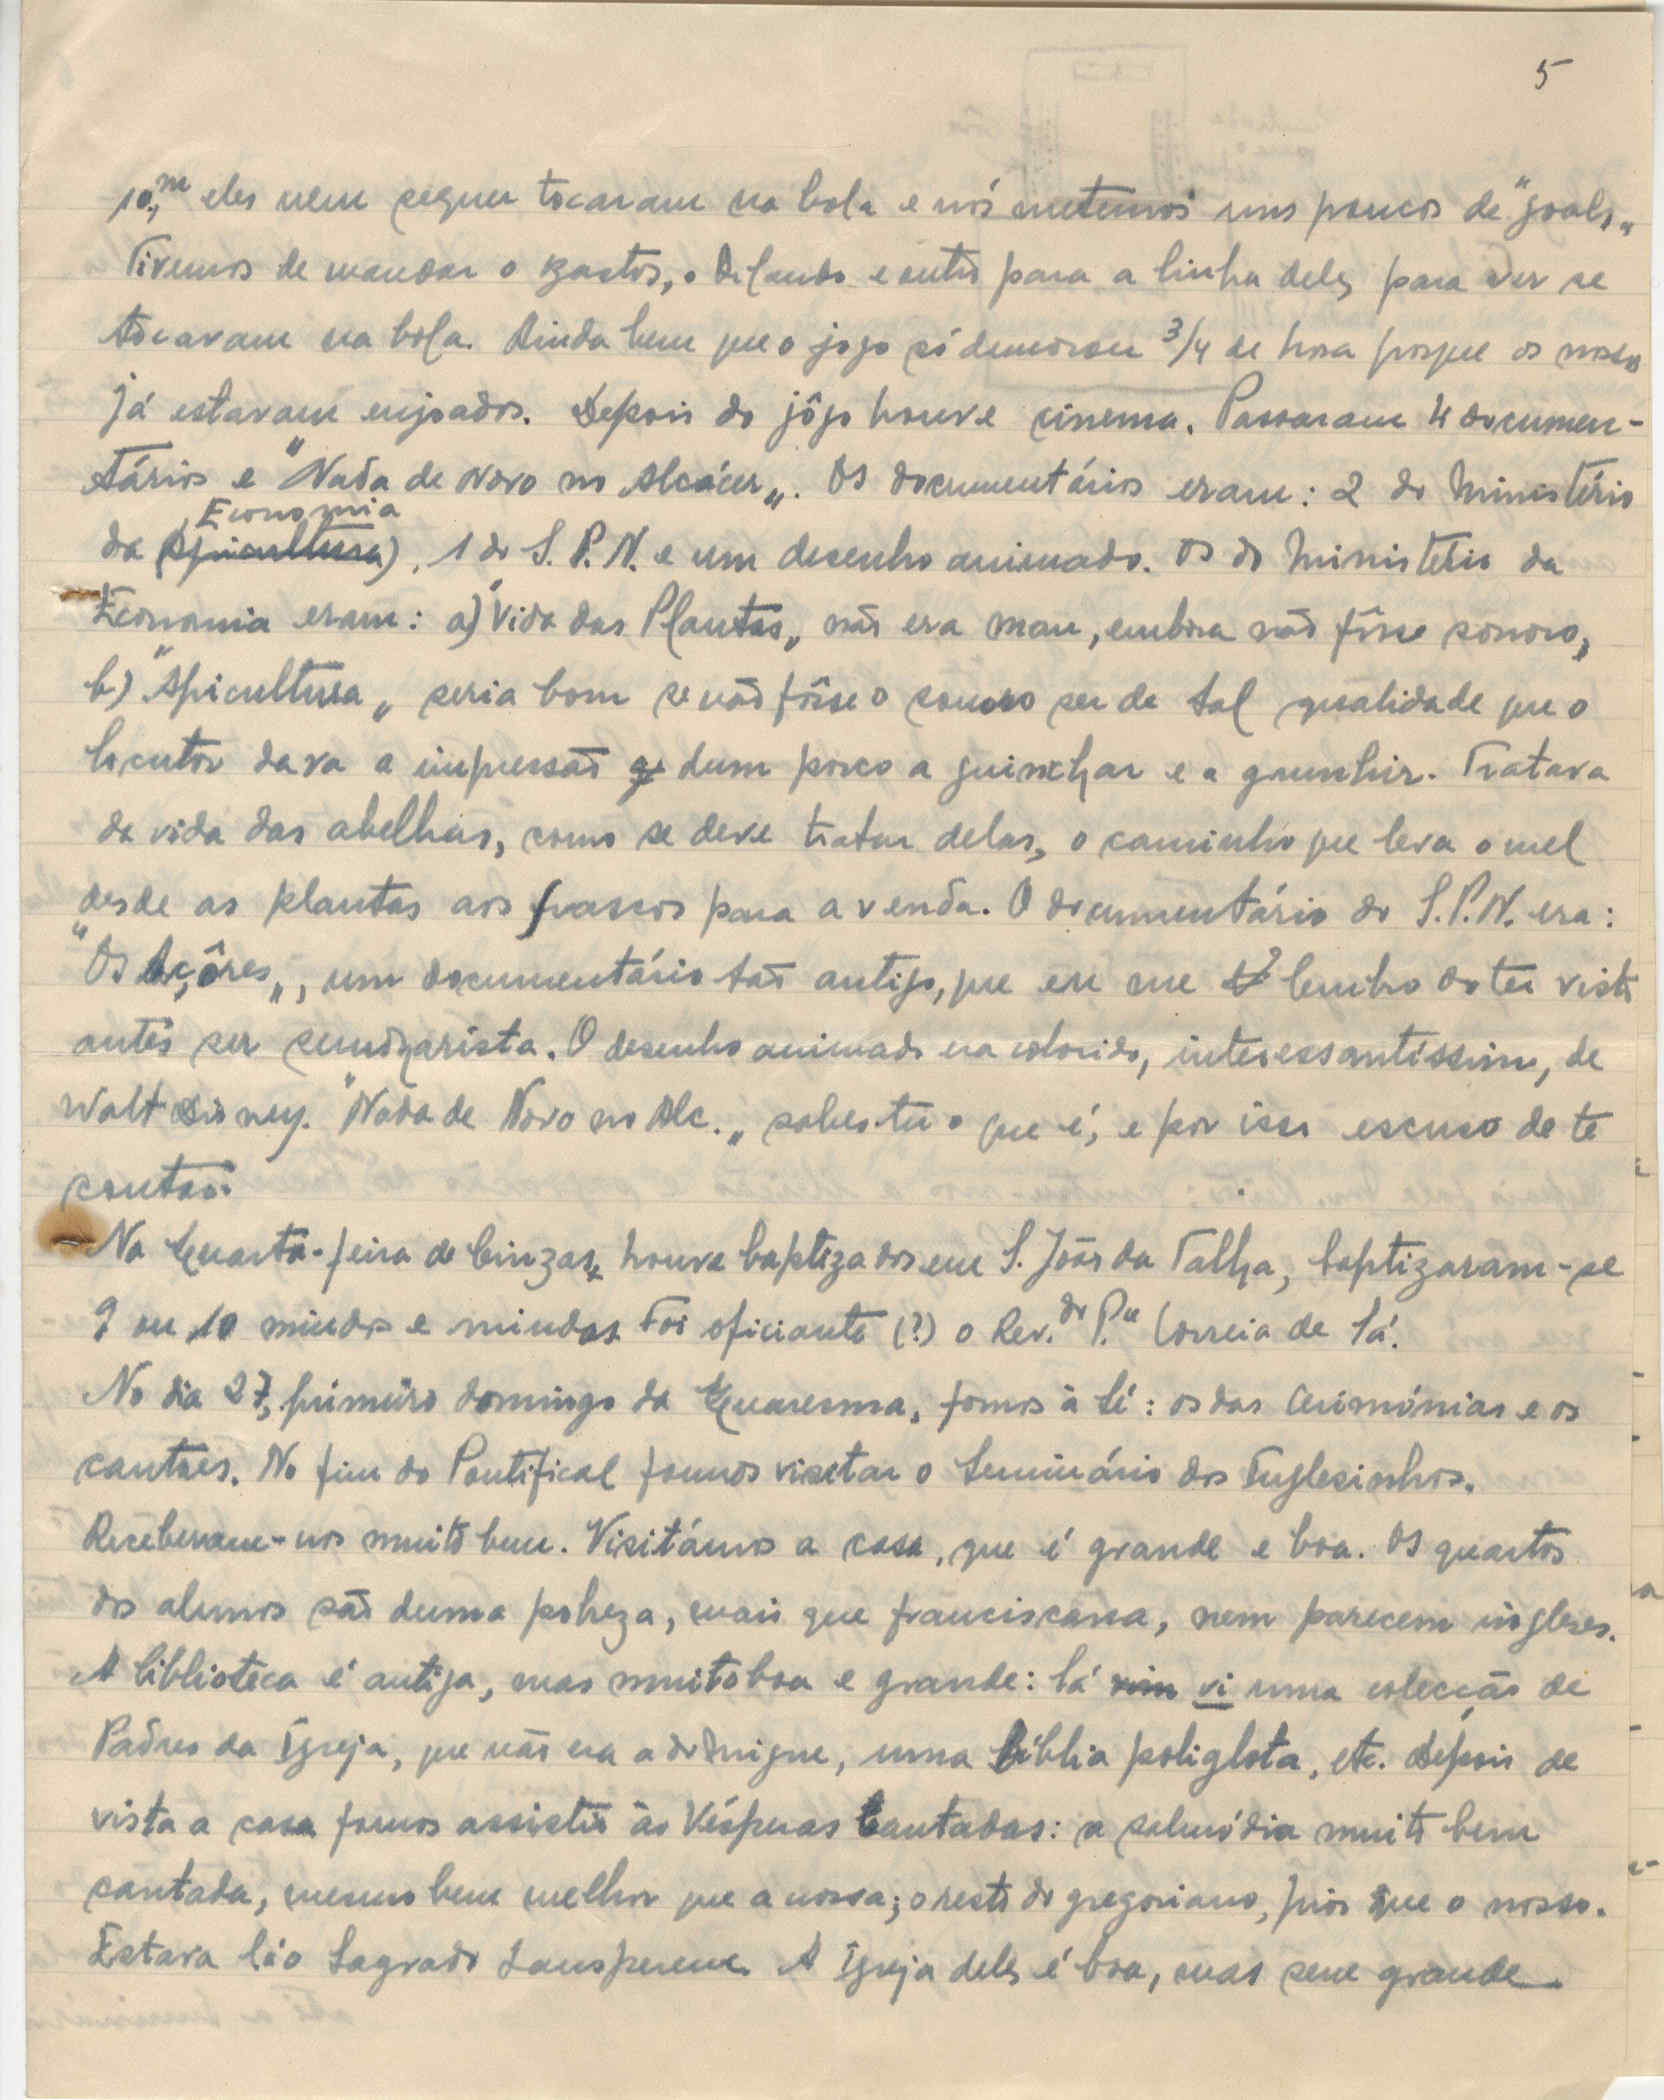 5
10,m eles nem sequer tocaram na bola e nós metemos uns poucos de "goals„
Tivemos de mandar o Bastos, o Orlando e outro para a linha deles para ver se
tocavam na bola. Ainda bem que o jogo só demorou 3/4 de hora porque os nossos
já estavam enjoados. Depois do jôgo houve cinema. Passaram 4 documen-
tários e "Nada de Novo no Alcácer„. Os documentários eram: 2 do Ministério
Economia
da (Apicultura), 1 do S.P.N. e um desenho animado. Os do Ministério da
Economia eram: a) "Vida das Plantas„ não era mau, embora não fôsse sonoro,
b) "Apicultura„ seria bom se não fôsse o sonoro ser de tal qualidade que o
locutor dava a impressão dum porco a guinchar e a grunhir. Tratava
da vida das abelhas, como se deve tratar delas, o caminho que leva o mel
desde as plantas aos frascos para a venda. O documentário do S.P.N. era:
"Os Açôres„, um documentário tão antigo, que eu me lembro de ter visto
antes ser seminarista. O desenho animado era colorido, interessantíssimo, de
Walt Disney. "Nada de Novo no Alc.„ sabes tu o que é, e por isso escuso de te
contar.
Na Quarta-feira de Cinzas, houve baptizados em S. João da Talha, baptizaram-se
9 ou 10 miudos e miudas. Foi oficiante (?) o Rev.do P.e Correia de Sá.
No dia 27, primeiro domingo da Quaresma, fomos à Sé: os das Cerimónias e os
cantores. No fim do Pontifical fomos visitar o Seminário dos Inglesinhos.
Receberam-nos muito bem. Visitámos a casa, que é grande e boa. Os quartos
dos alunos são duma pobreza, mais que franciscana, nem parecem ingleses.
A biblioteca é antiga, mas muito boa e grande: lá vi uma colecção de
Padres da Igreja, que não era a do Migne, uma Bíblia poliglota, etc. Depois de
vista a casa fomos assistir às Vésperas Cantadas: a salmódia muito bem
cantada, mesmo bem melhor que a nossa; o resto do gregoriano, pior que o nosso.
Estava lá o Sagrado Lausperene. A Igreja deles é boa, mas sem grande